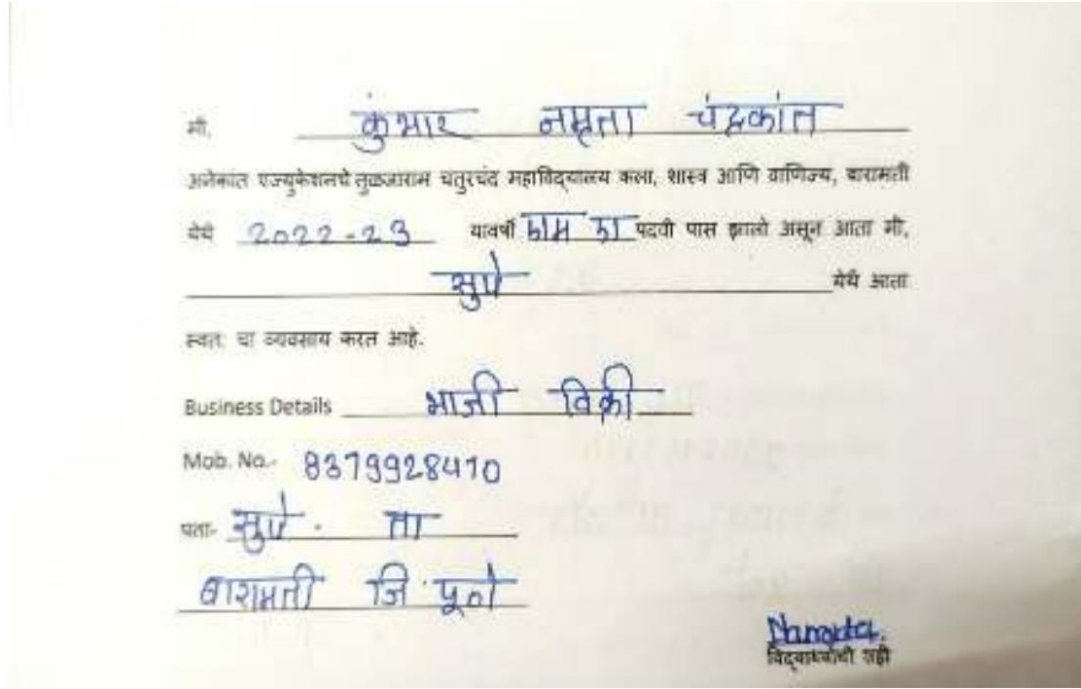 मी, कुंभार नम्रता चंद्रकांत
अनेकांत एज्युकेशनचे तुळजाराम चतुरचंद महाविद्यालय कला, शास्त्र आणि वाणिज्य, बारामती
येथे 2022-23 यावर्षी पदवी पास झालो असून आता मी,
सुपे येथे आता
स्वतः चा व्यवसाय करत आहे.
Business Details भाजी विक्री
Mob. No.- 8379928410
पत्ता- सुपे. ता
बारामती जि. पूणे
Namrata.
विद्यार्थ्याची सही